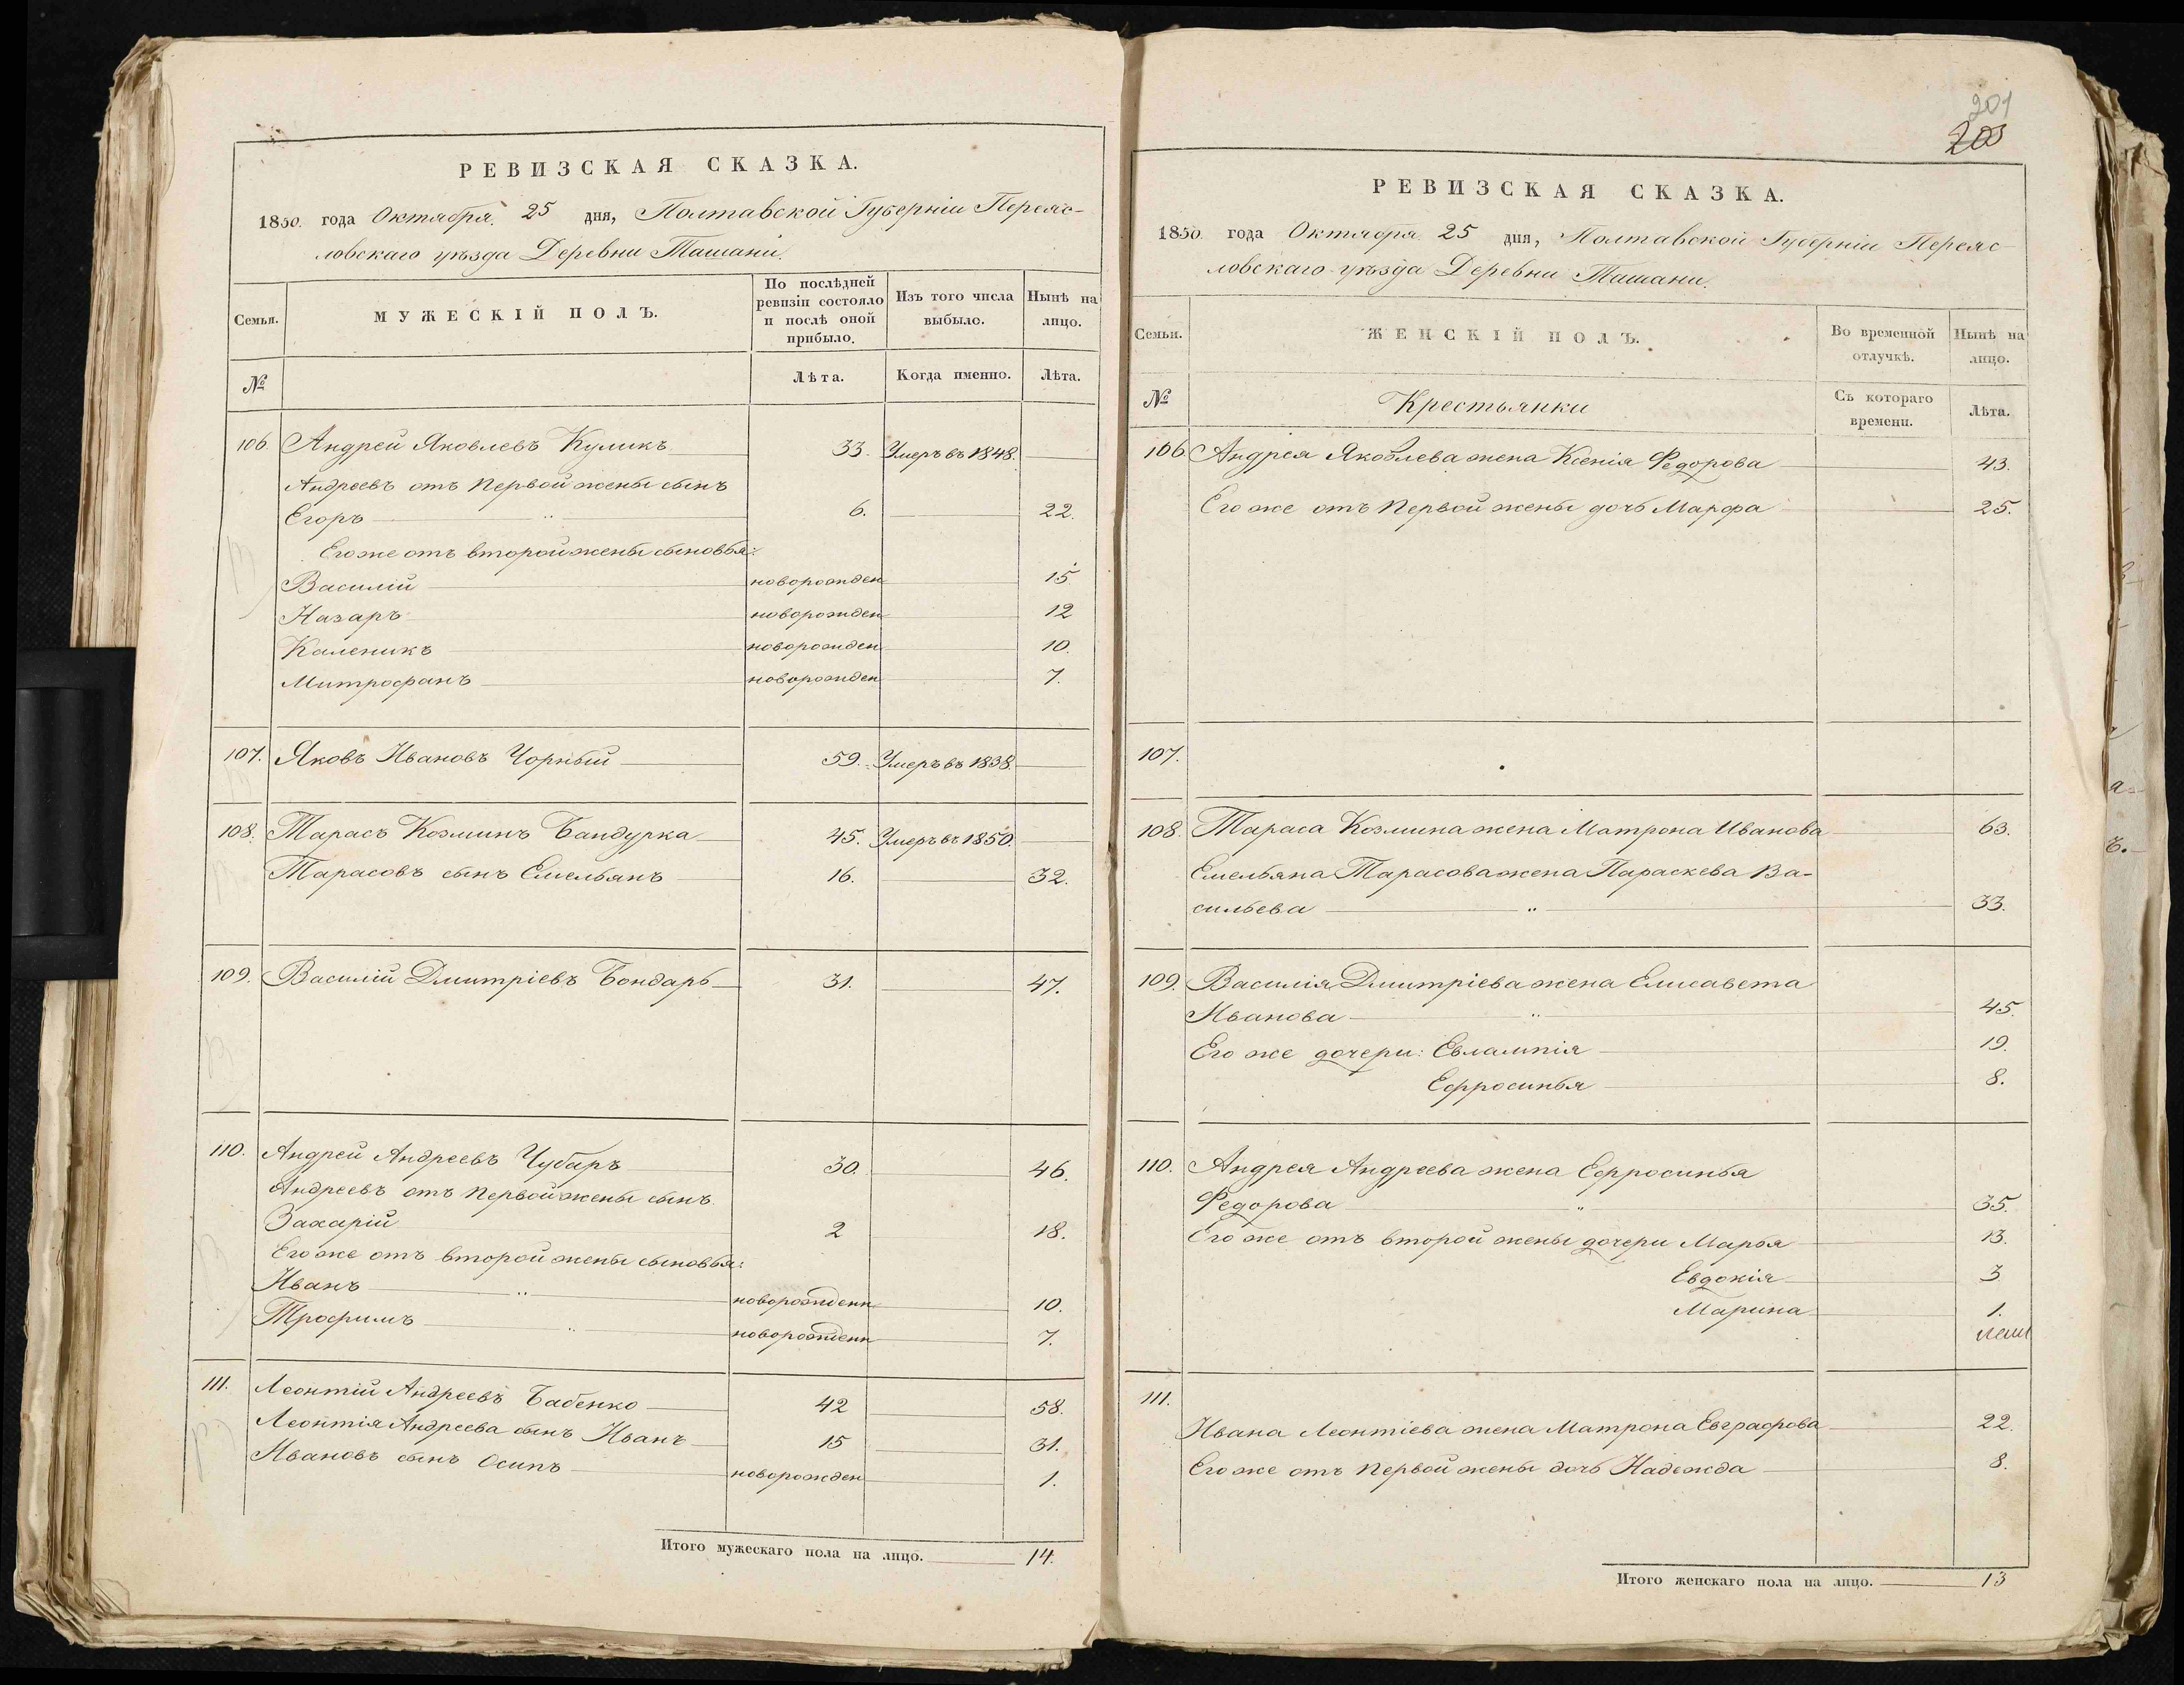 РЕВИЗСКАЯ СКАЗКА.
1850. года Октября. 25 дня, Полтавской Губерніи Переяс-
ловскаго уѣзда Деревни Ташани.
Семьи.
МУЖЕСКІЙ ПОЛЪ.
По послѣдней
ревизіи состояло
и послѣ оной
прибыло.
Изъ того числа
выбыло.
Нынѣ на
лицо.
№
Лѣта.
Когда именно.
Лѣта.
106. Андрей Яковлевъ Куликъ 33. Умеръ въ 1848.
Андреевъ отъ первой жены сынъ
Егоръ 6. 22.
Его же отъ второй жены сыновья:
Василій новорожден 15
Назаръ новорожден 12
Каленикъ новорожден 10.
Митрофанъ новорожден 7.
107. Яковъ Ивановъ Чорный 59. Умеръ въ 1838.
108. Тарасъ Козминъ Бандурка 45. Умеръ въ 1850.
Тарасовъ сынъ Емельянъ 16. 32.
109. Василій Дмитріевъ Бондарь 31. 47.
110. Андрей Андреевъ Чубаръ 30. 46.
Андреевъ отъ первой жены сынъ
Захарій 2 18.
Его же отъ второй жены сыновья:
Иванъ новорожденн 10.
Трофимъ новорожденн 7.
111. Леонтій Андреевъ Бабенко 42 58.
Леонтія Андреева сынъ Иванъ 15 31.
Ивановъ сынъ Осипъ новорожден 1.
Итого мужескаго пола на лицо. 14.
201
203
РЕВИЗСКАЯ СКАЗКА.
1850 года Октября 25 дня, Полтавской Губерніи Переяс
ловскаго уѣзда Деревни Ташани.
Семьи.
ЖЕНСКІЙ ПОЛЪ.
Во временной
отлучкѣ.
Нынѣ на
лицо.
№
Крестьянки
Съ котораго
времени.
Лѣта.
106 Андрея Яковлева жена Ксенія Федорова 43.
Его же отъ первой жены дочь Марфа 25.
107.
108. Тараса Козмина жена Матрона Иванова 63.
Емельяна Тарасова жена Параскева Ва-
сильева 33.
109. Василія Дмитріева жена Елисавета
Иванова 45.
Его же дочери: Евлампія 19.
Ефросинья 8.
110. Андрея Андреева жена Ефросинья
Федорова 35.
Его же отъ второй жены дочери Марья 13.
Евдокія 3
Марина 1.
111.
Ивана Леонтіева жена Матрона Евграфова 22.
Его же отъ первой жены дочь Надежда 8.
Итого женскаго пола на лицо. 13